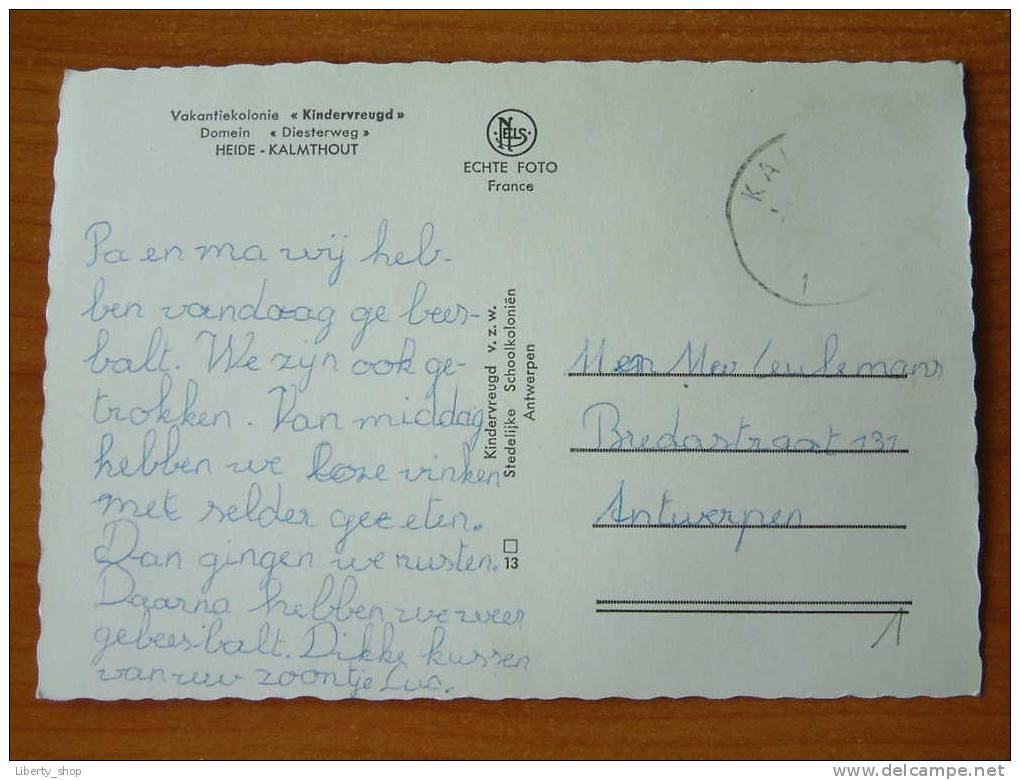 Vakantiekolonie « Kindervreugd »
Domein « Diesterweg »
HEIDE - KALMTHOUT
NELS
ECHTE FOTO
France
KAL
1
Pa en ma wij heb-
ben vandaag ge bees-
balt. We zijn ook ge-
trokken. Van middag
hebben we loze vinken
met selder geeeten.
Dan gingen we rusten.
Daarna hebben we weer
gebeesbalt. Dikke kussen
van uw zoontje Luc.
Kindervreugd v. z. w.
Stedelijke Schoolkoloniën
Antwerpen
13
M en Mev Ceulemans
Bredastraat 131
Antwerpen
1
Liberty_shop
delcampe.net